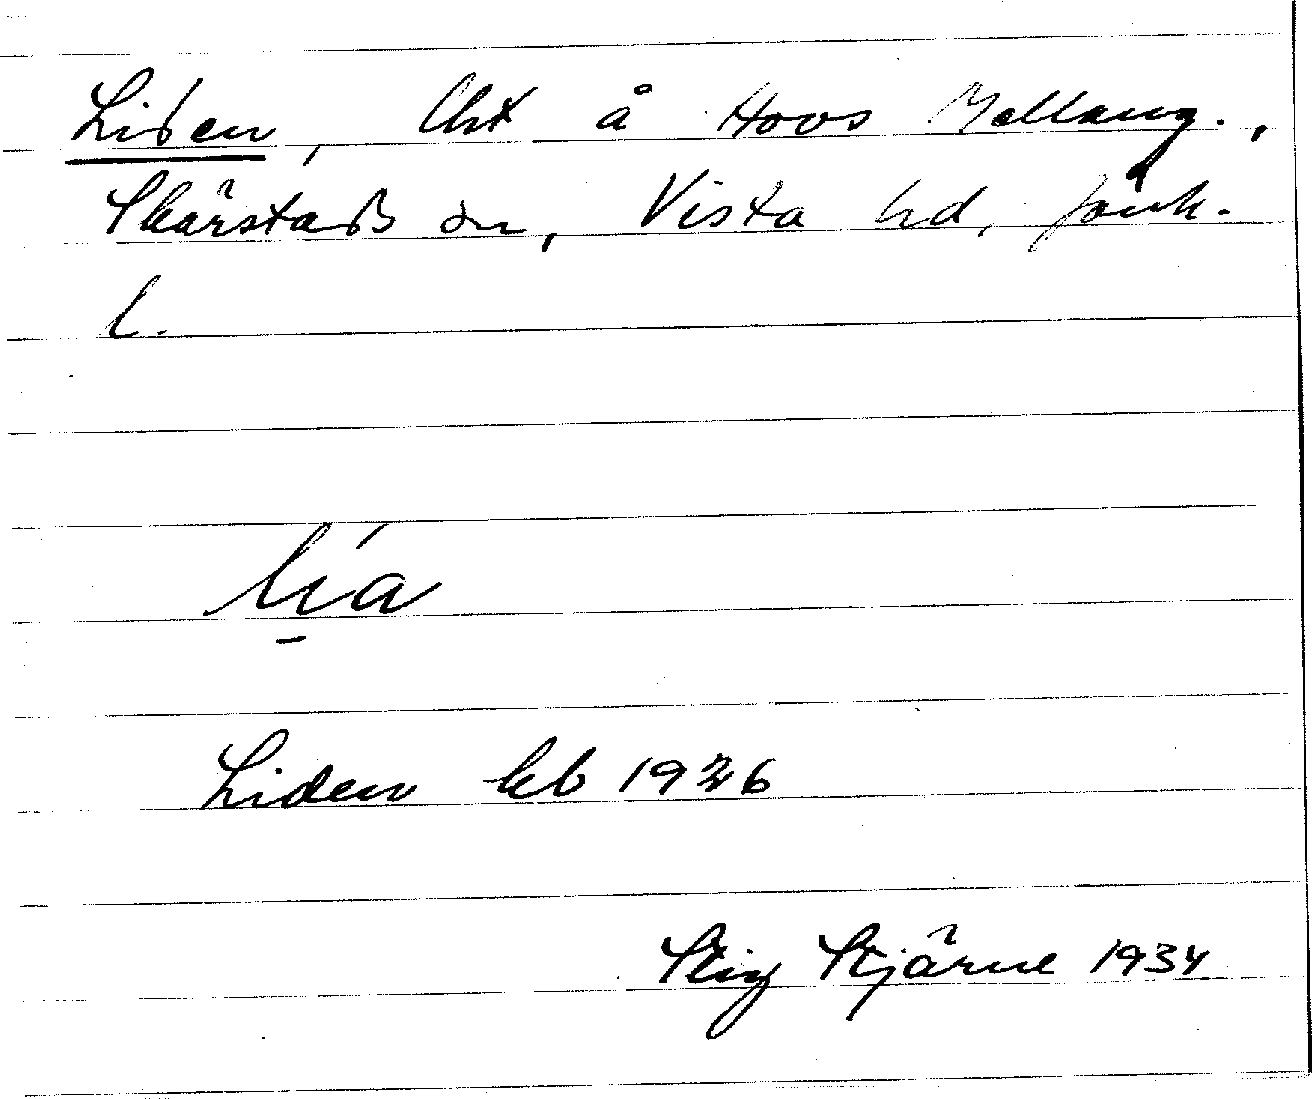 Liden, lht å Hovs Mellang.,
Skärstads sn, Vista hd, Jönk.
l.
lía
Liden kb 1926
Stig Stjärne 1934